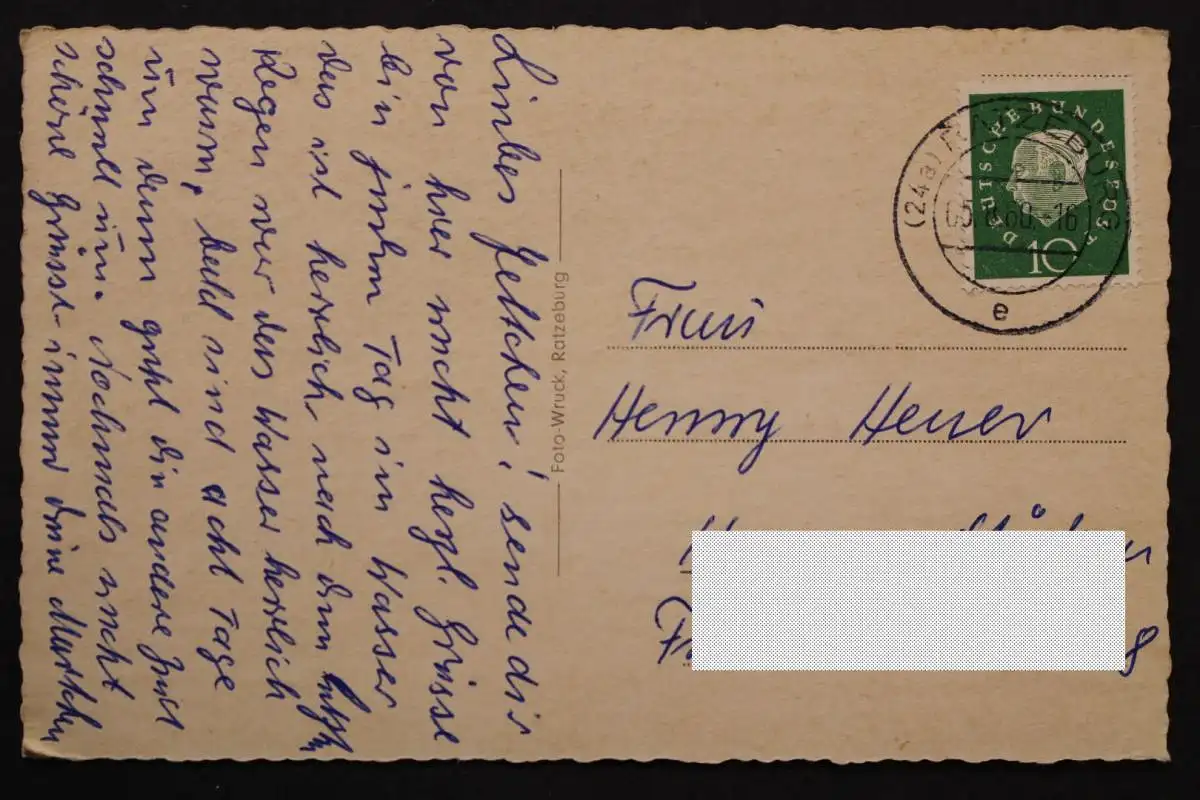 Liebes Jettchen! sende dir
von hier recht herzl. Grüsse
bin jeden Tag im Wasser
das ist herrlich, nach dem
Regen war das Wasser herrlich
warm, bald sind acht Tage
um dann geht die andere Zeit
schnell um. Nochmals recht
schöne Grüsse immer deine
Foto-Wruck, Ratzeburg
DEUTSCHE BUNDESPOST
10
(24a) RATZEBURG
e
Frau
Henny Heuer